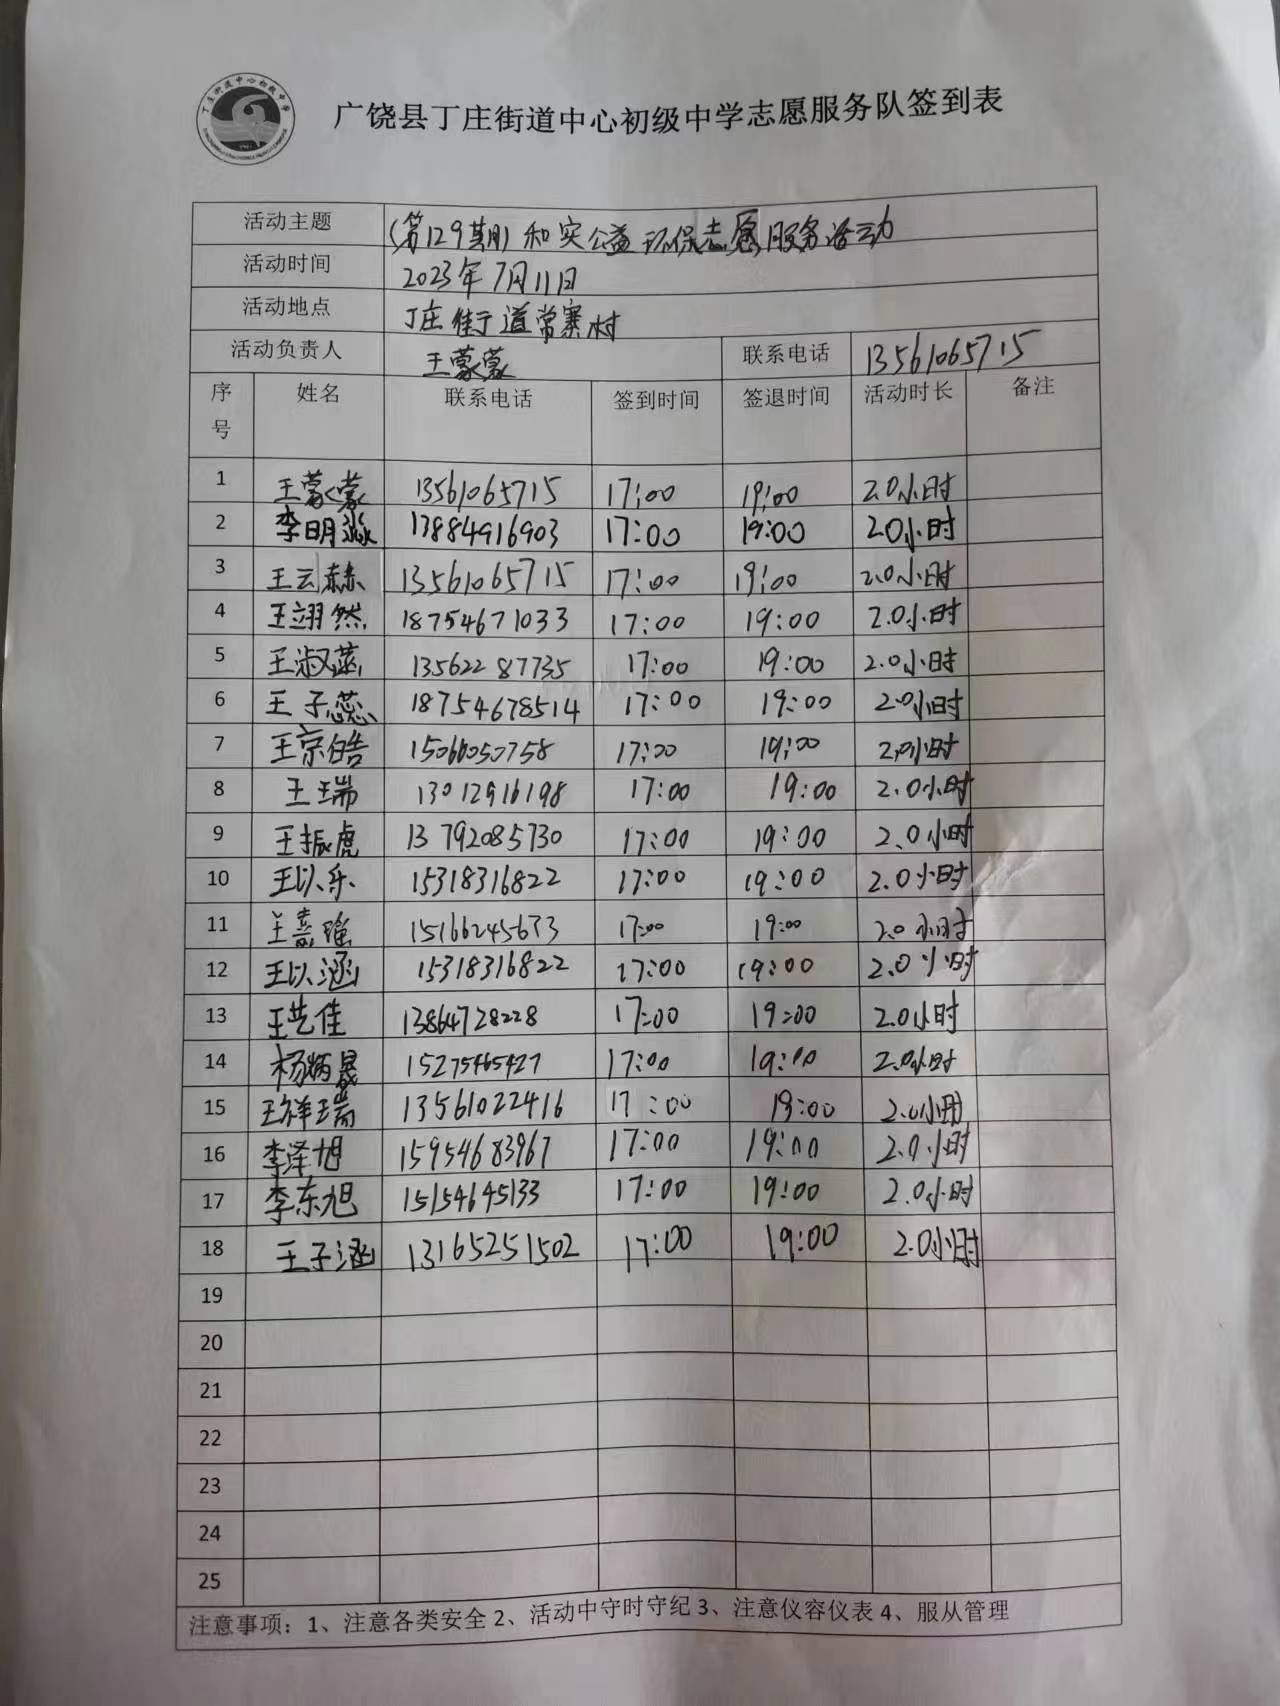 丁庄街道中心初级中学
广饶县丁庄街道中心初级中学志愿服务队签到表
活动主题 (第129期)和实公益环保志愿服务活动
活动时间 2023年7月11日
活动地点 丁庄街道常寨村
活动负责人 王蒙蒙 联系电话 13561065715
序号 姓名 联系电话 签到时间 签退时间 活动时长 备注
1 王蒙蒙 13561065715 17:00 19:00 2.0小时
2 李明淼 13884916903 17:00 19:00 2.0小时
3 王云赫 13561065715 17:00 19:00 2.0小时
4 王翊然 18754671033 17:00 19:00 2.0小时
5 王淑菡 13562287735 17:00 19:00 2.0小时
6 王子蕊 18754678514 17:00 19:00 2.0小时
7 王京皓 15066050758 17:00 19:00 2.0小时
8 王瑞 13012916198 17:00 19:00 2.0小时
9 王振虎 13792085730 17:00 19:00 2.0小时
10 王以乐 15318316822 17:00 19:00 2.0小时
11 王嘉瑶 15166245673 17:00 19:00 2.0小时
12 王以涵 15318316822 17:00 19:00 2.0小时
13 王艺佳 13864728228 17:00 19:00 2.0小时
14 杨炳晟 15275465427 17:00 19:00 2.0小时
15 王祥瑞 13561022416 17:00 19:00 2.0小时
16 李泽旭 15954683967 17:00 19:00 2.0小时
17 李东旭 15154645133 17:00 19:00 2.0小时
18 王子涵 13165251502 17:00 19:00 2.0小时
19
20
21
22
23
24
25
注意事项：1、注意各类安全 2、活动中守时守纪 3、注意仪容仪表 4、服从管理